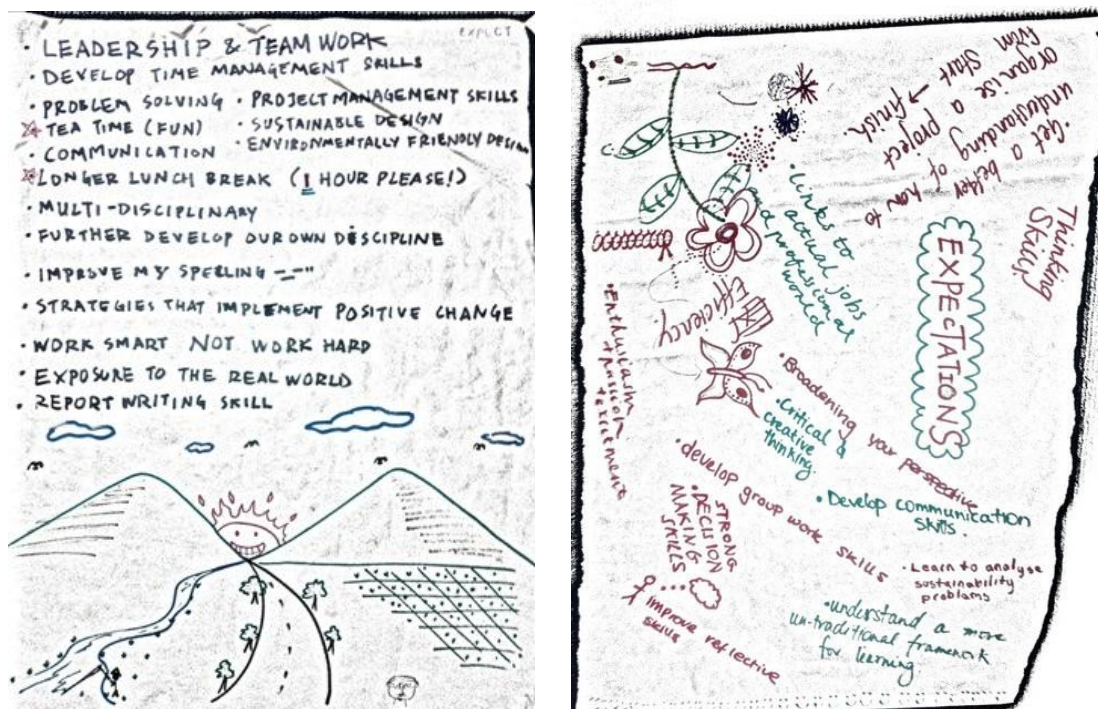 EXPECT
• LEADERSHIP & TEAM WORK
• DEVELOP TIME MANAGEMENT SKILLS
• PROBLEM SOLVING • PROJECT MANAGEMENT SKILLS
TEA TIME (FUN) • SUSTAINABLE DESIGN
• COMMUNICATION • ENVIRONMENTALLY FRIENDLY DESIGN
LONGER LUNCH BREAK (1 HOUR PLEASE!)
• MULTI-DISCIPLINARY
• FURTHER DEVELOP OUR OWN DISCIPLINE
• IMPROVE MY SPELLING
• STRATEGIES THAT IMPLEMENT POSITIVE CHANGE
• WORK SMART NOT WORK HARD
• EXPOSURE TO THE REAL WORLD
• REPORT WRITING SKILL
EXPECTATIONS
• Get a better
understanding of how to
organise a project
from start → finish
Thinking
Skills
• Links to
actual jobs
and professional
world
Efficiency
• Enthusiasm
+ passion
+ excitement
• Broadening your perspective
• Critical &
creative
thinking.
• develop group work skills
• Develop communication
skills.
STRONG
DECISION
MAKING
SKILLS
• Learn to analyse
sustainability
problems
improve reflective
skills
• understand a more
un-traditional framework
for learning.